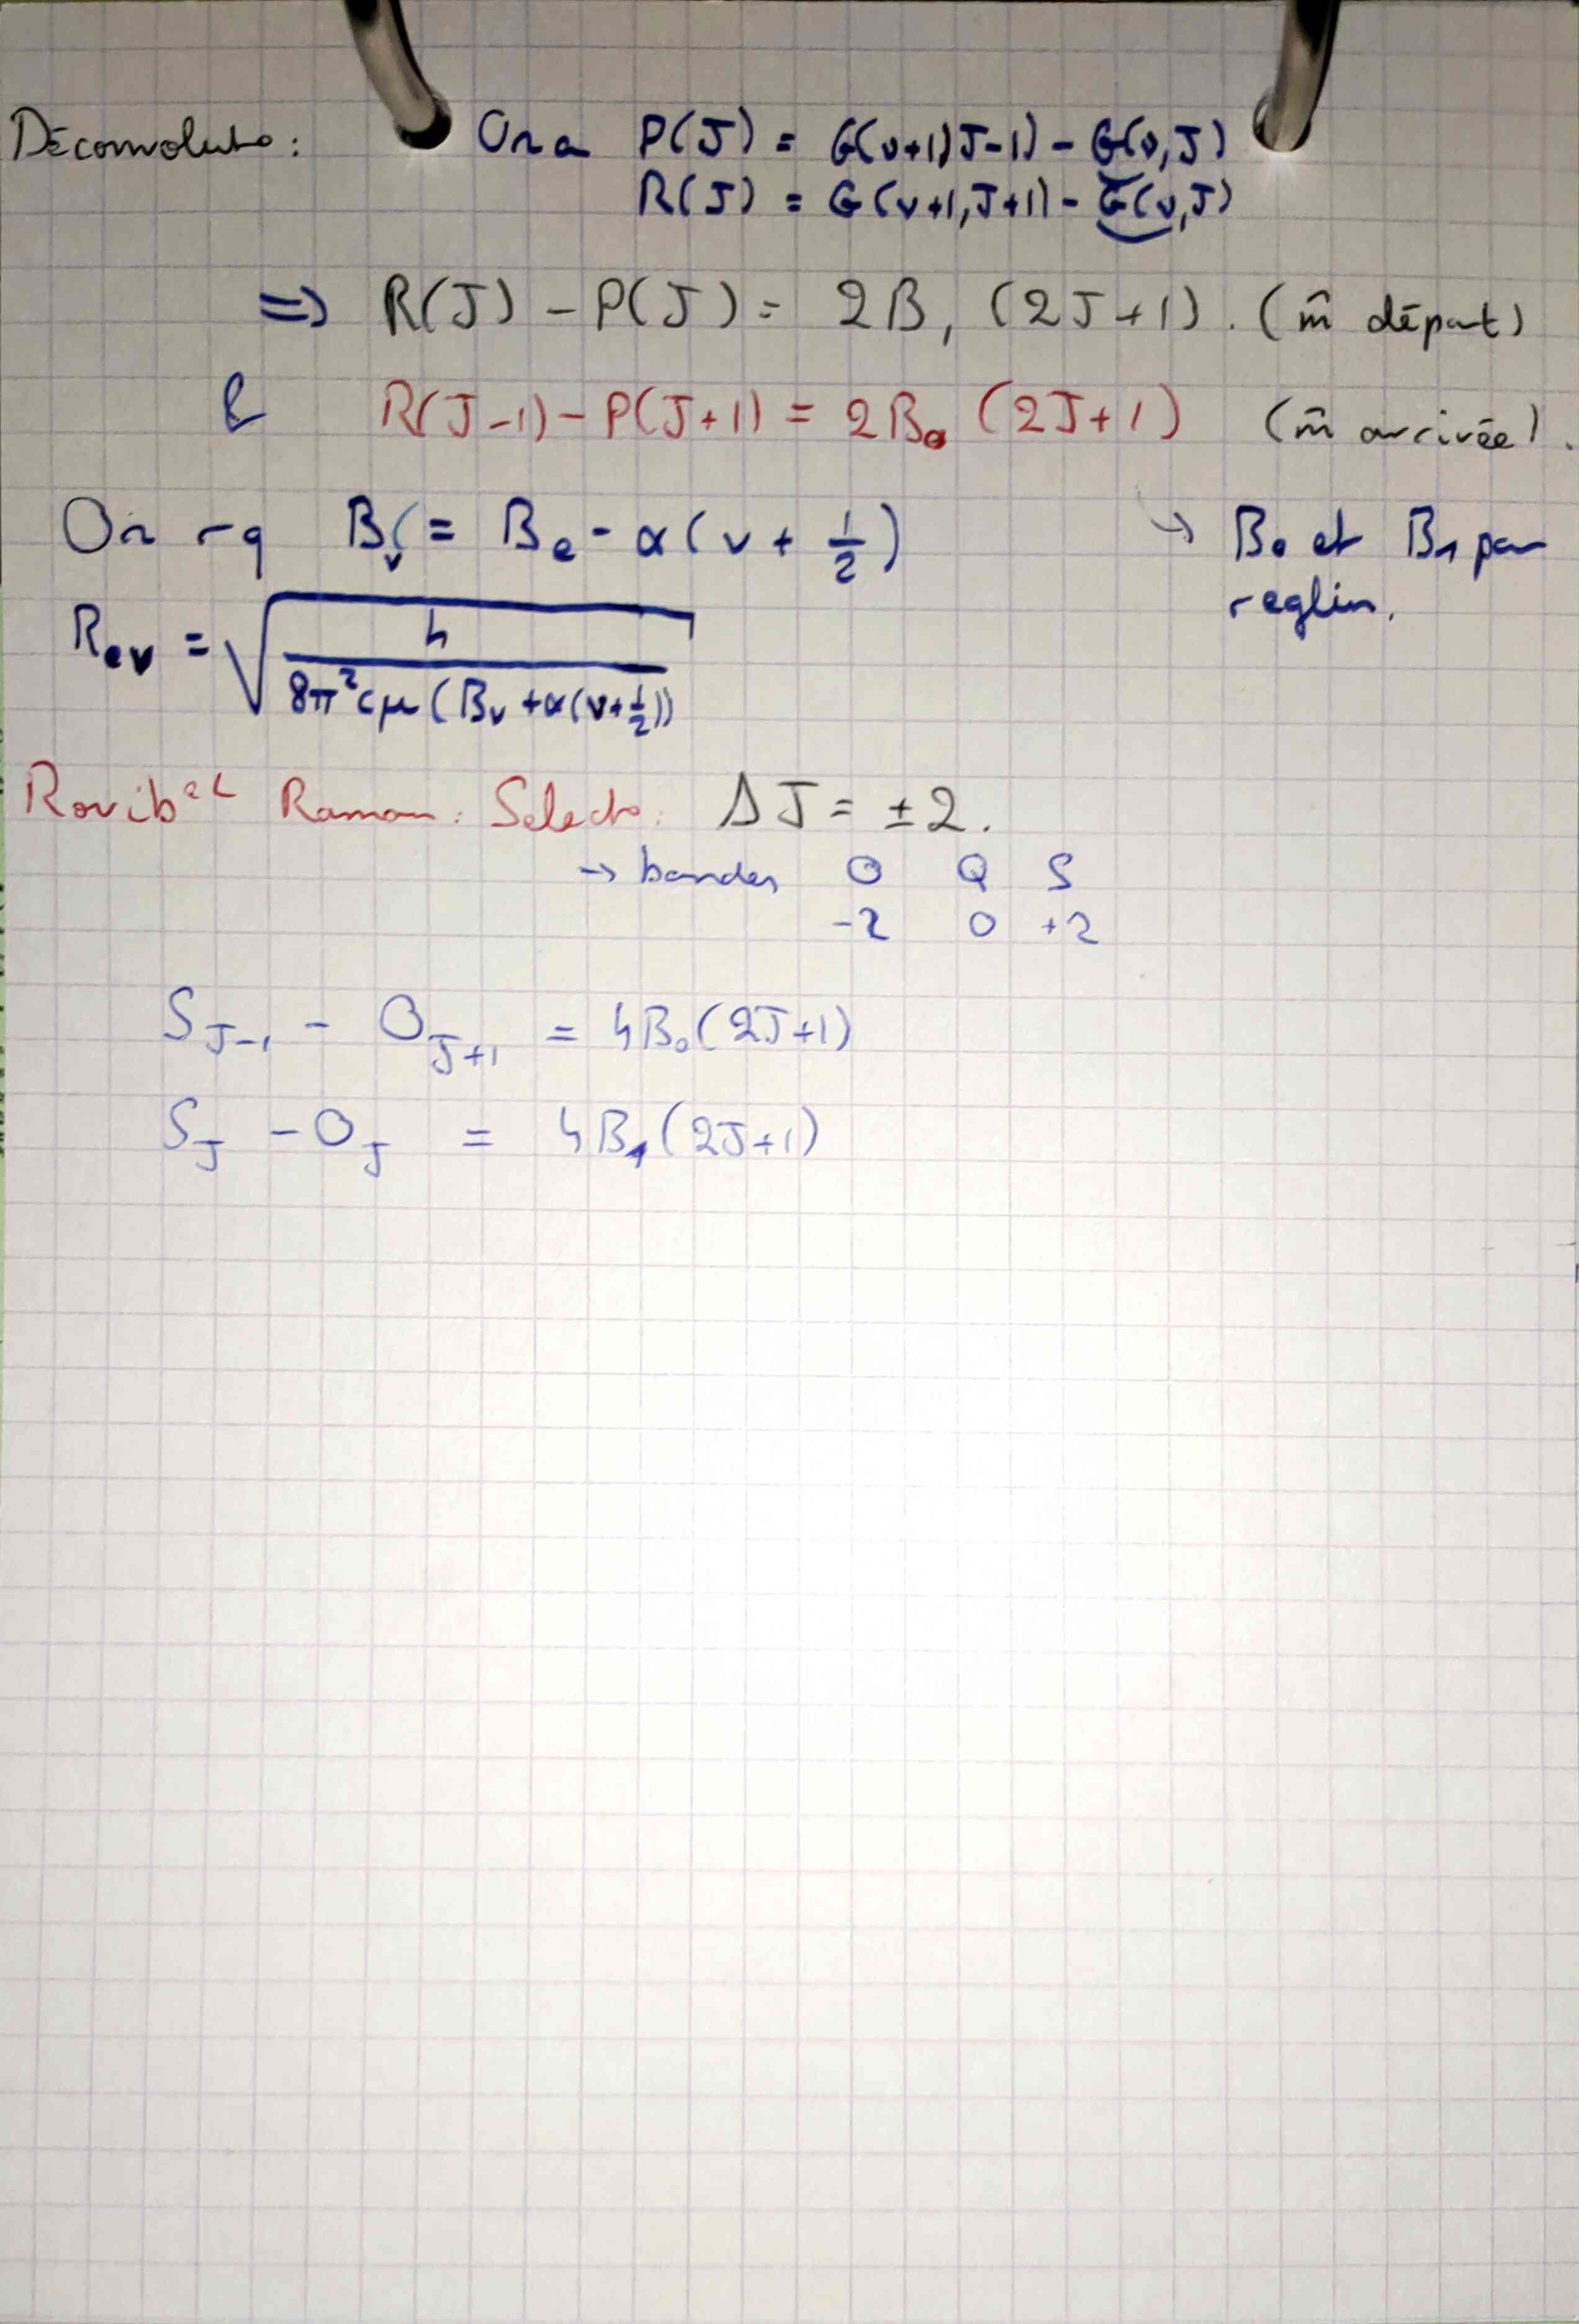 Déconvoluto : On a P(J) = G(v+1,J-1) - G(v,J)
R(J) = G(v+1,J+1) - G(v,J)
=> R(J) - P(J) = 2B₁ (2J+1). (m̂ départ)
& R(J-1) - P(J+1) = 2B₀ (2J+1) (m̂ arrivée).
On rq Bᵥ = Bₑ - α(v + 1/2) → B₀ et B₁ par
reglin.
Rₑᵥ = √(h / 8π²cμ(Bᵥ + α(v+1/2)))
Rovibᵉˡ Raman : Selecto : ΔJ = ±2.
→ bandes O Q S
-2 0 +2
S_{J-1} - O_{J+1} = 4B₀(2J+1)
S_J - O_J = 4B₁(2J+1)